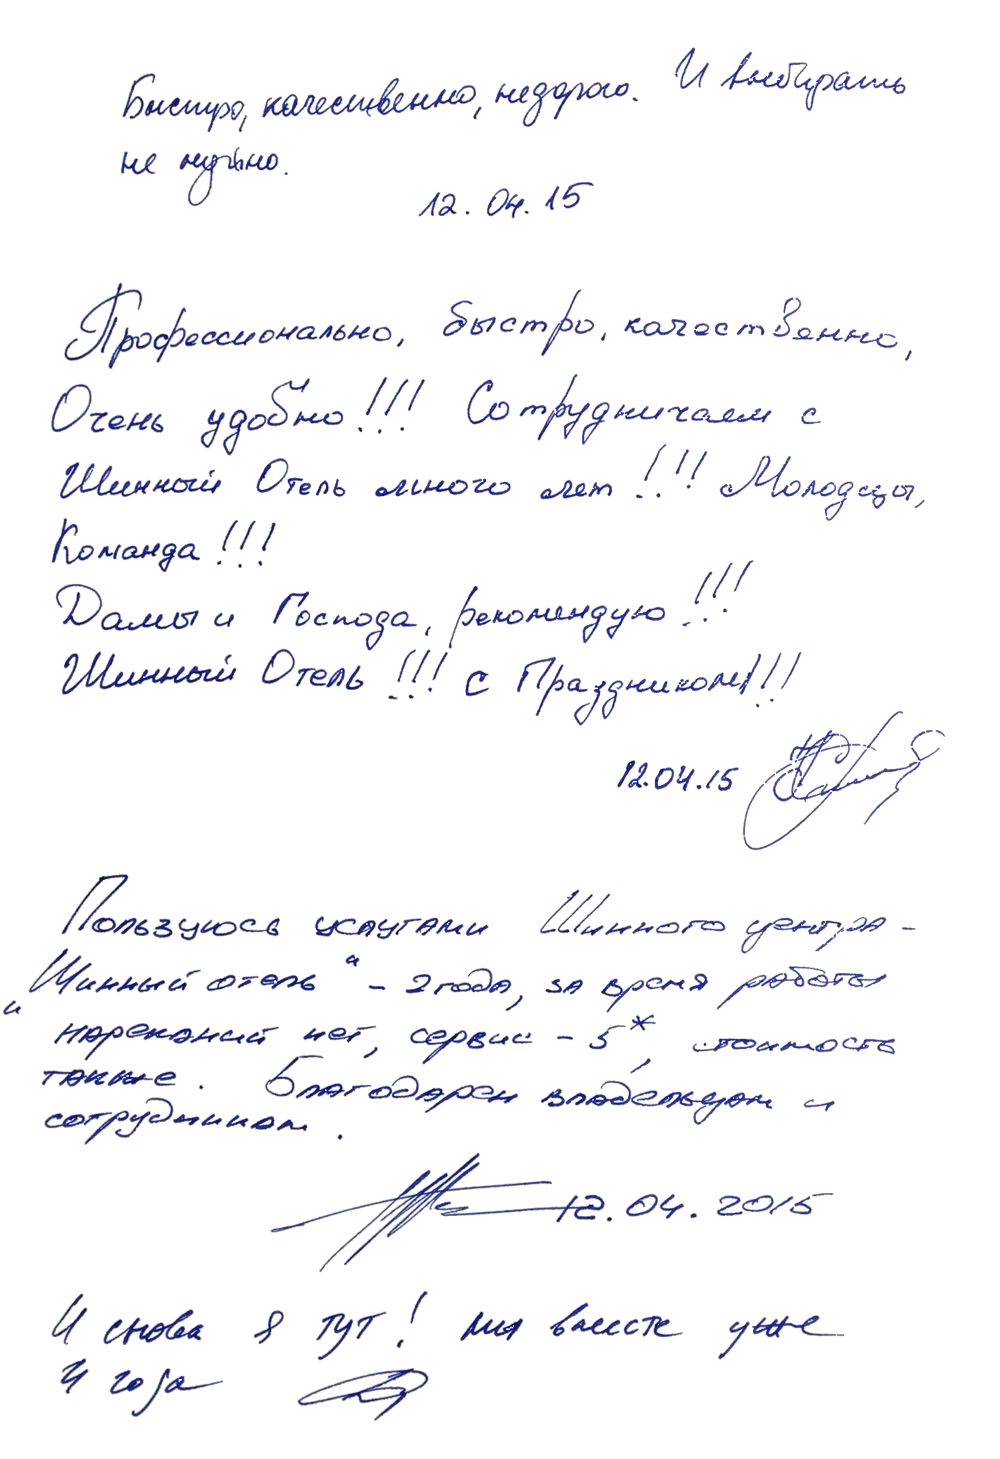 Быстро, качественно, недорого. И выбирать
не нужно.
12.04.15
Профессионально, быстро, качественно,
Очень удобно!!! Сотрудничаем с
Шинный Отель много лет!!! Молодцы,
Команда!!!
Дамы и Господа, рекомендую!!!
Шинный Отель!!! С Праздником!!!
12.04.15
Пользуюсь услугами Шинного центра -
"Шинный отель" - 2 года, за время работы
нареканий нет, сервис - 5*, стоимость
также. Благодарен владельцам и
сотрудникам.
12.04.2015
И снова я тут! мы вместе уже
4 года